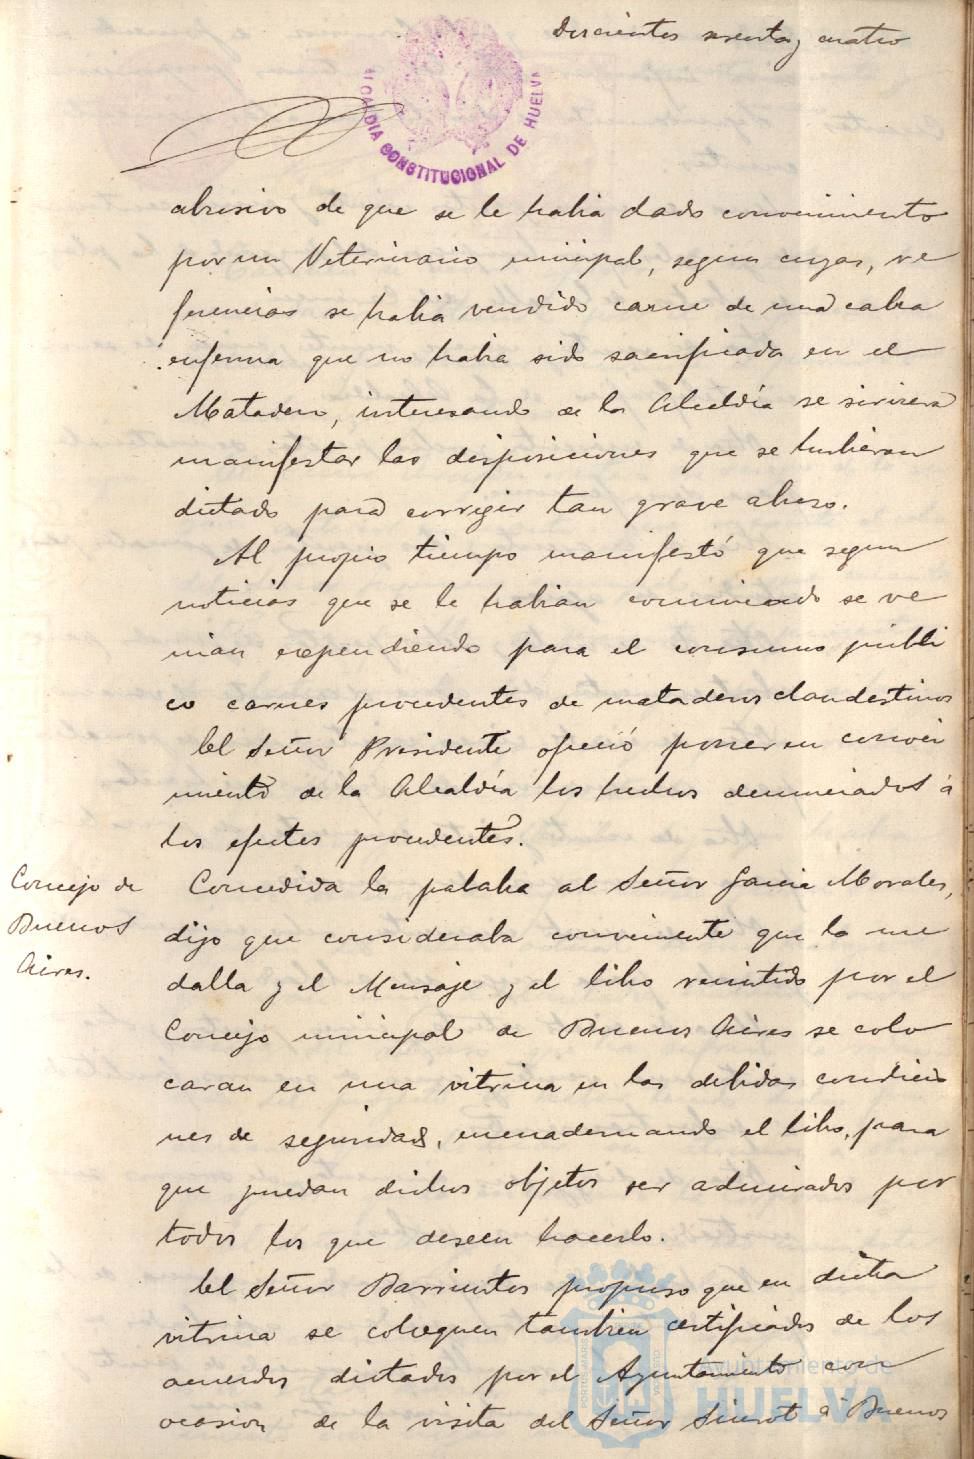 Doscientos sesenta y cuatro
ALCALDIA CONSTITUCIONAL DE HUELVA
abusivo de que se le habia dado conocimiento
por un Veterinario municipal, segun cuyas, re
ferencias se habia vendido carne de una cabra
enferma que no habia sido sacrificada en el
Matadero, interesando de la Alcaldía se sirviera
manifestar las disposiciones que se hubieran
dictado para corregir tan grave abuso.
Al propio tiempo manifestó que segun
noticias que se le habian comunicado se ve
nian expendiendo para el consumo públi
co carnes procedentes de mataderos clandestinos
El Señor Presidente ofreció poner en conoci
miento de la Alcaldía los hechos denunciados á
los efectos procedentes.
Concejo de
Buenos
Aires.
Concedida la palabra al Señor Garcia Morales,
dijo que consideraba conveniente que la me
dalla y el Mensaje y el libro remitido por el
Concejo municipal de Buenos Aires se colo
caran en una vitrina en las debidas condicio
nes de seguridad, encuadernando el libro, para
que puedan dichos objetos ser admirados por
todos los que deseen hacerlo.
El Señor Barrientos propuso que en dicha
vitrina se coloquen tambien certificados de los
acuerdos dictados por el Ayuntamiento con
ocasion de la visita del Señor Siurot á Buenos
Ayuntamiento de
HUELVA